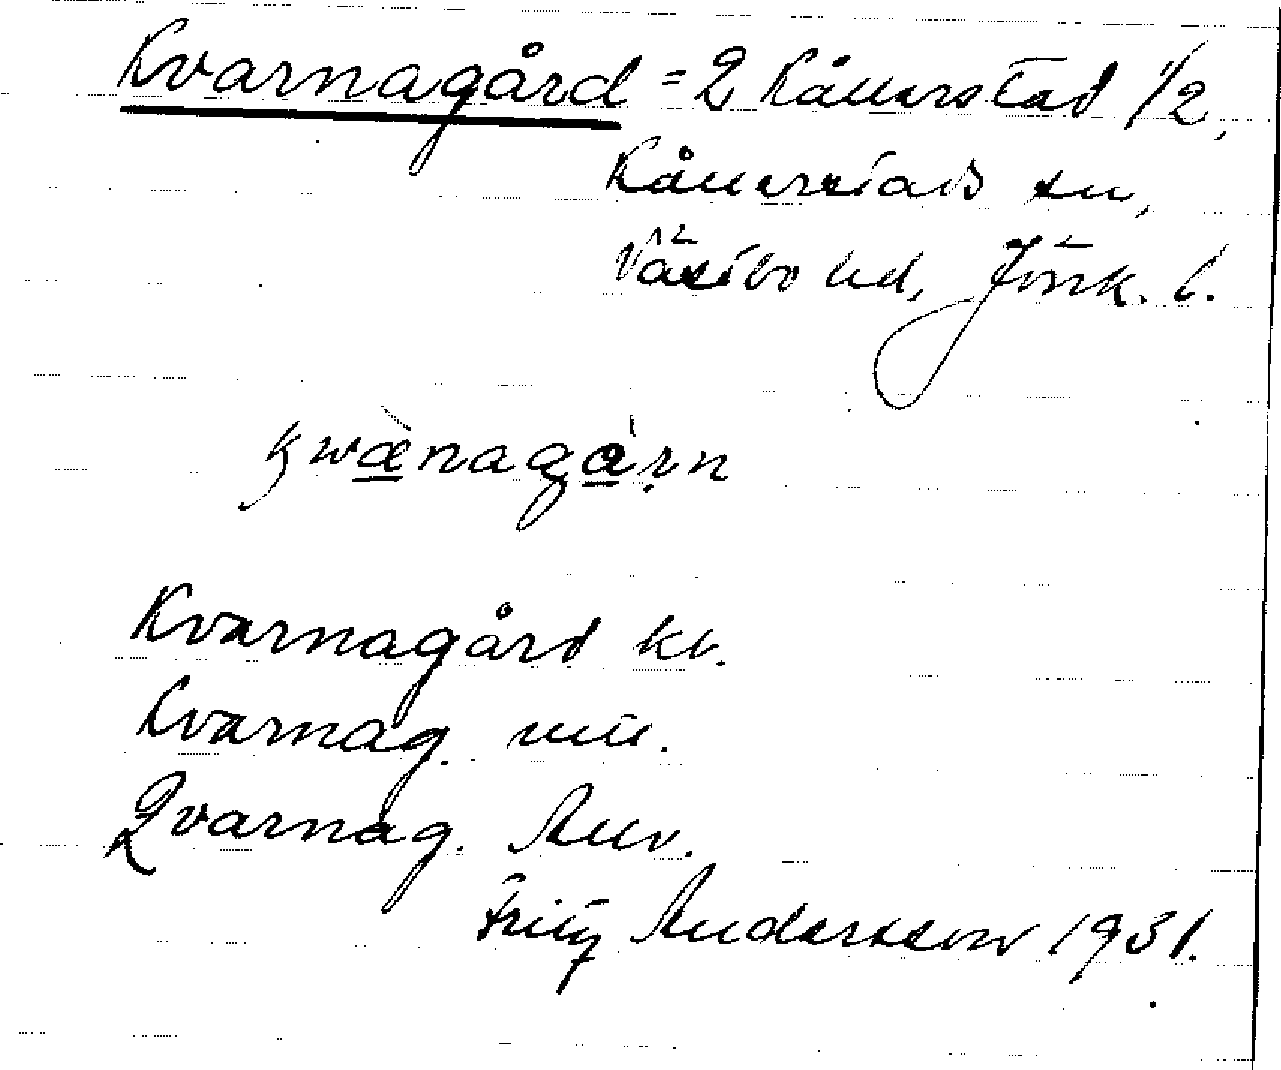 Kvarnagård = 2 Kållerstad 1/2,
Kållerstads sn,
Västbo hd, Jönk. l.
kwænagárn
Kvarnagård kb.
Kvarnag.
Qvarnag.
Fritz Andersson 1931.